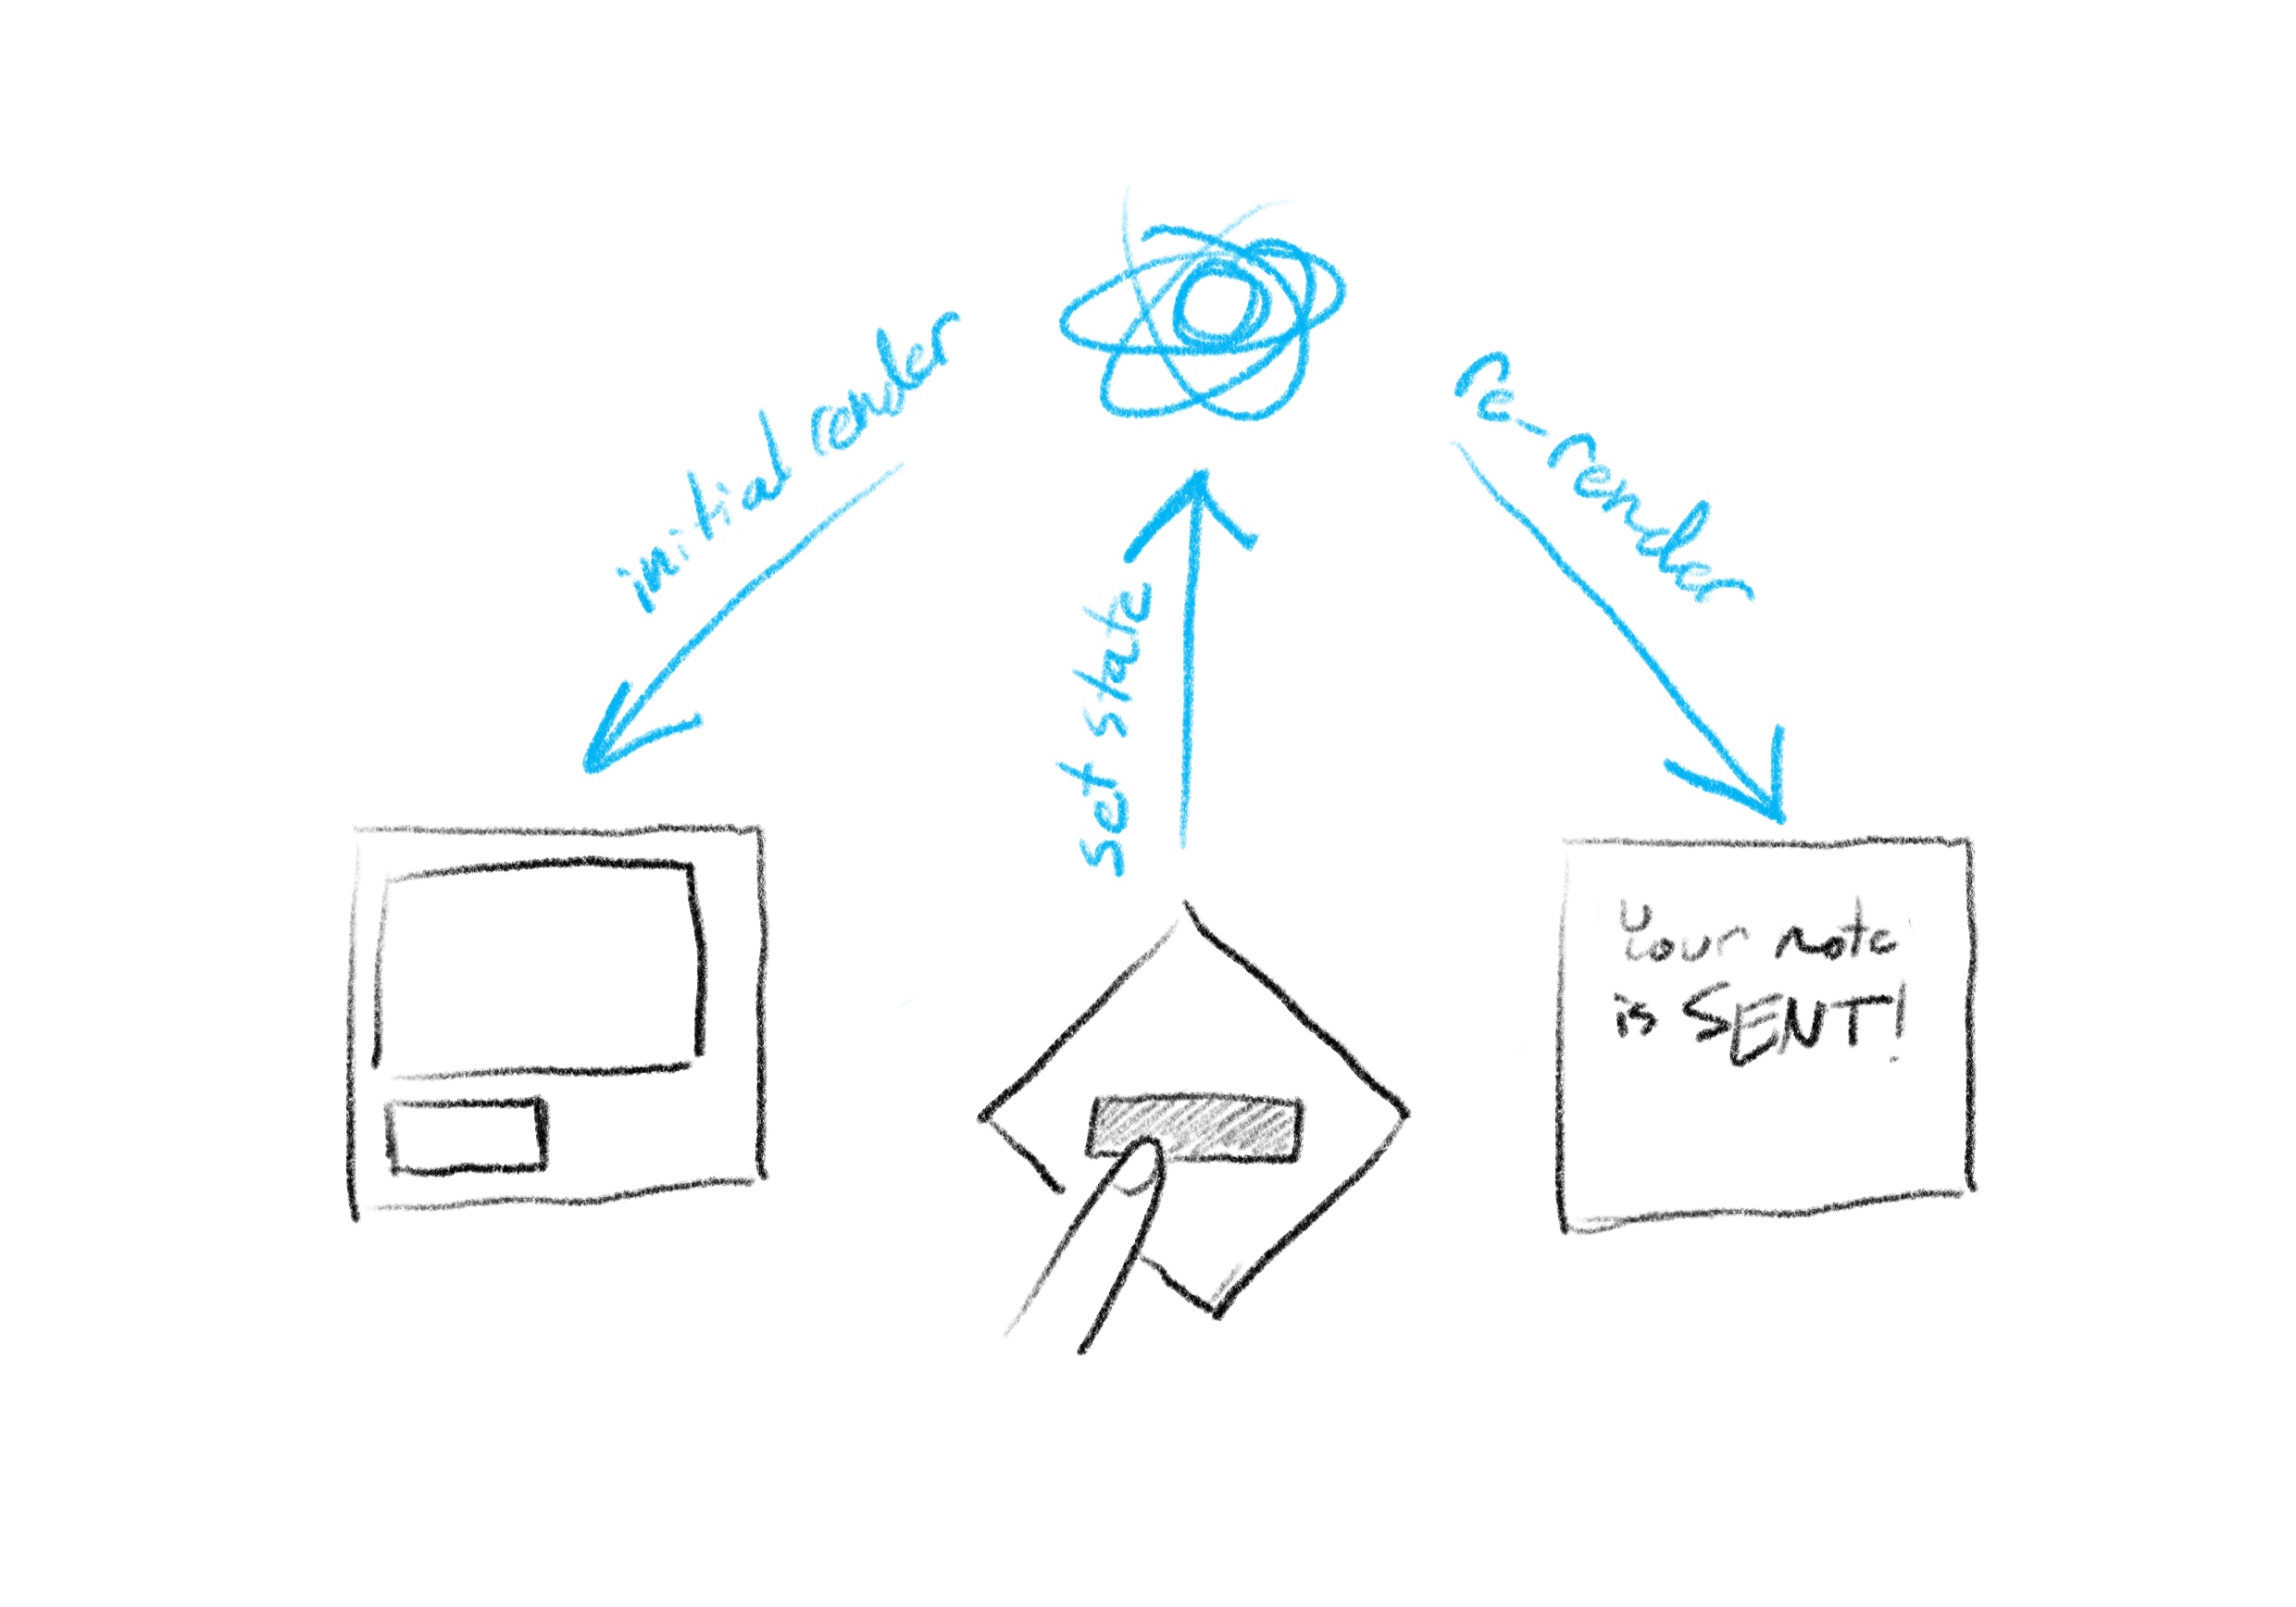 initial render
set state
re-render
Your note
is SENT!